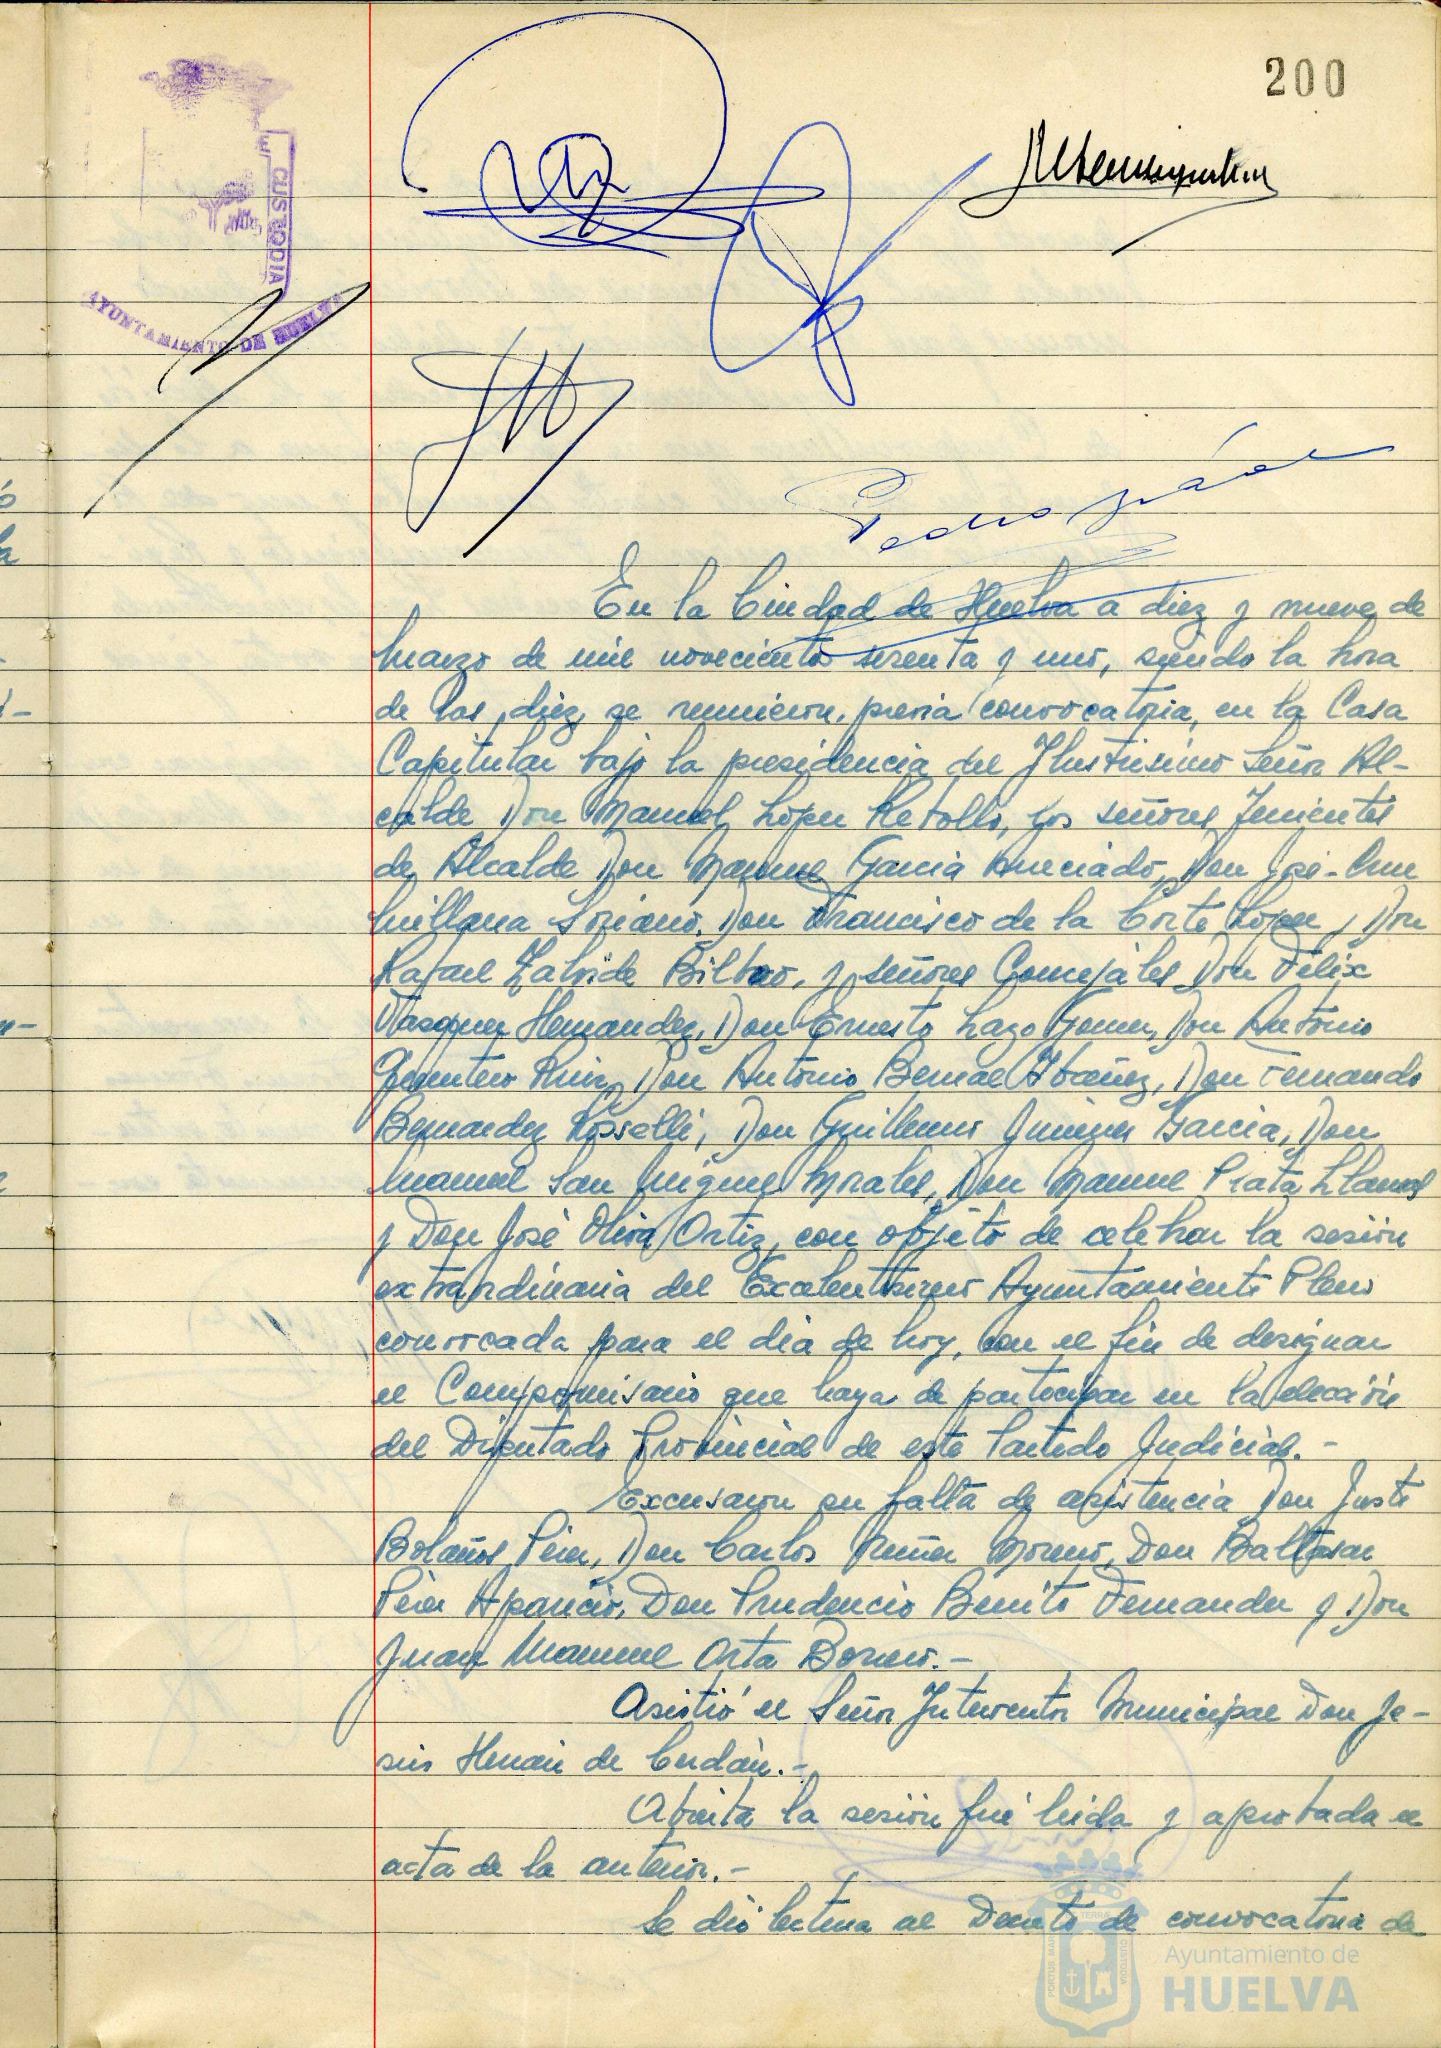 200
E CUSTODIA
AYUNTAMIENTO DE HUELVA
Pedro
En la Ciudad de Huelva a diez y nueve de
Marzo de mil novecientos setenta y uno, siendo la hora
de las diez, se reunieron, previa convocatoria, en la Casa
Capitular bajo la presidencia del Ilustrisimo Señor Al-
calde Don Manuel López Rebollo, los señores Tenientes
de Alcalde Don Manuel Garcia Don José-Luis
Quillana Soriano, Don Francisco de la Corte López y Don
Rafael Zalvide Bilbao, y señores Concejales Don Félix
Vasquez Hernandez, Don Ernesto Lazo Gomez, Don Antonio
Quintero Ruiz, Don Antonio Bernal Ibañez, Don Fernando
Bernardez Rosselli, Don Guillermo Jimenez Garcia, Don
Manuel San Miguel Morales, Don Manuel Prata Llamas
y Don José Oliva Ortiz, con objeto de celebrar la sesión
extraordinaria del Excelentisimo Ayuntamiento Pleno
convocada para el dia de hoy, con el fin de designar
el Compromisario que haya de participar en la elección
del Diputado Provincial de este Partido Judicial.-
Excusaron su falta de asistencia Don Justo
Bolaños Pérez, Don Carlos Núñez Moreno, Don Baltasar
Pérez Aparicio, Don Prudencio Benito Fernandez y Don
Juan Manuel Orta Borrero.-
Asistió el Señor Interventor Municipal Don Je-
sús Hernán de Cerdán.-
Abierta la sesión fué leida y aprobada el
acta de la anterior.-
Se dió lectura al Decreto de convocatoria de
Ayuntamiento de
HUELVA